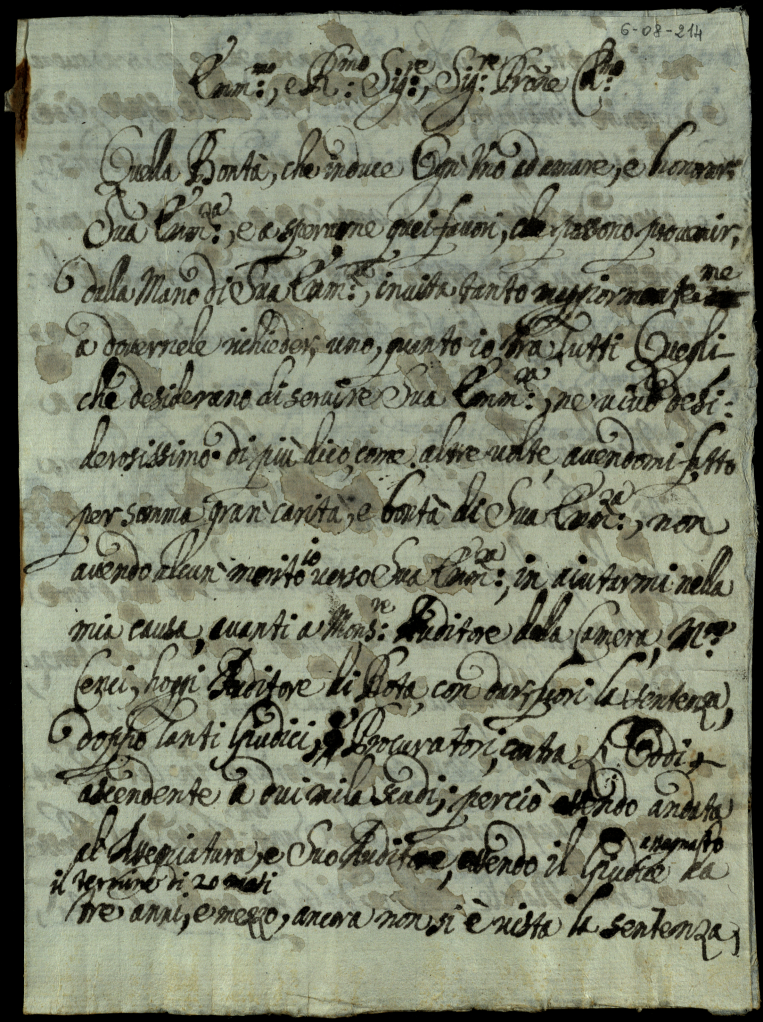 6-08-214
Emm:mo, e R:mo Sig:re, Sig:re Prōne C:mo
Quella Bontà, che induce Ogn'Uno ad amare, e honorar,
Sua Emm:za, e a sperarne quei favori, che possono provenir,
dalla Mano di Sua Emm:za, invita tanto maggiormente me
a dovernele richieder, uno, quanto io tra Tutti Quegli
che desiderano di servire Sua Emm:za, ne vivo desi:
derosissimo. di più dico, come altre volte, avendomi fatto
per somma gran carità, e bontà di Sua Emm:za, non
avendo alcun merito io verso Sua Emm:za, in aiutarmi nella
mia causa, avanti a Mons:re Auditore della Camera,
Cenci, hoggi Auditore di Rota, con dar, fuori la sentenza,
doppo tanti Giudici, e Procuratori, contra
ascendente a dui mila scudi; perciò essendo andata
al Segnatura, e Suo Auditore, avendo il Giudice assegnato
il termine di 20 mesi
tre anni, e mezzo, ancora non si è vista la sentenza,